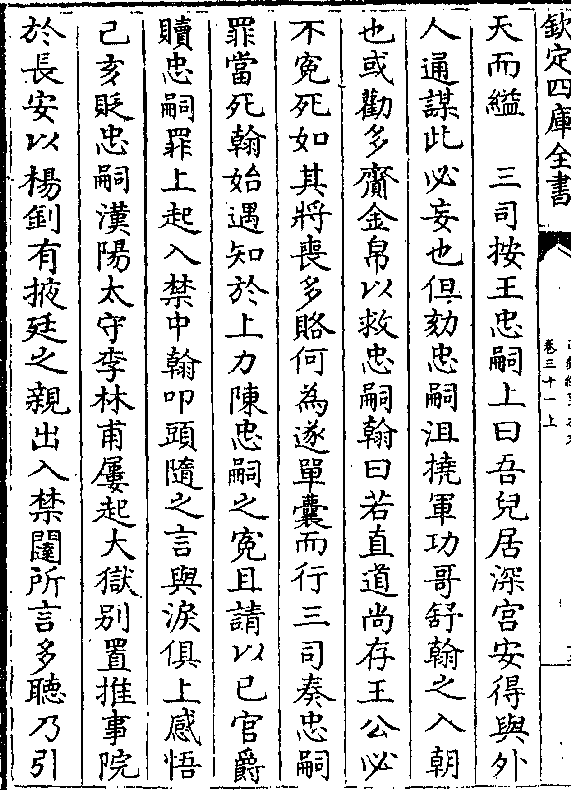 欽定四庫全書
卷三十一上
天而縊　三司按王忠嗣上曰吾兒居深宫安得與外
人通謀此必妄也但劾忠嗣沮撓軍功哥舒翰之入朝
也或勸多齎金帛以救忠嗣翰曰若直道尚存王公必
不寃死如其將喪多賂何為遂單囊而行三司奏忠嗣
罪當死翰始遇知於上力陳忠嗣之寃且請以已官爵
贖忠嗣罪上起入禁中翰叩頭隨之言與淚俱上感悟
己亥貶忠嗣漢陽太守李林甫屢起大獄别置推事院
於長安以楊釗有掖廷之親出入禁闥所言多聽乃引